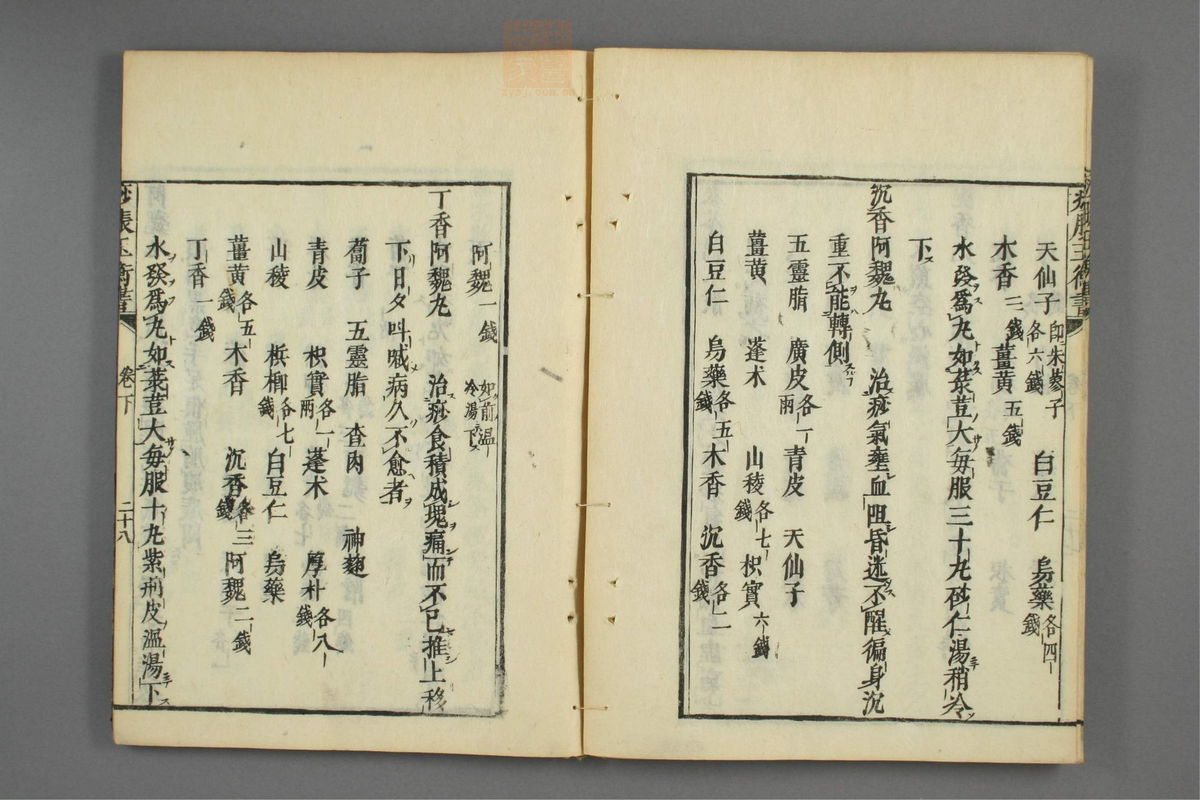 天仙子 即朱蓼子各六錢 白豆仁 烏藥 各四錢
木香 三錢 薑黃 五錢
水發爲丸如菉荳大每服三十丸砂仁湯稍冷
下
沉香阿魏丸 治痧氣壅血阻昏迷不醒徧身沉
重不能轉側
五靈脂 廣皮 各一兩 青皮 天仙子
薑黃 蓬术 山稜 各七錢 枳實 六錢
白豆仁 烏藥 各五錢 木香 沉香 各二錢
阿魏 一錢 如前溫冷湯下
丁香阿魏丸 治痧食積成塊痛而不已推上移
下日夕呌喊病久不愈者
蔔子 五靈脂 查肉 神麯
青皮 枳實 各一兩 蓬术 厚朴 各八錢
山稜 檳榔 各七錢 白豆仁 烏藥
薑黃 各五錢 木香 沉香 各三錢 阿魏 二錢
丁香 一錢
水發爲丸如菉荳大每服十丸紫荊皮溫湯下
痧脹玉衡書 卷下 二十八